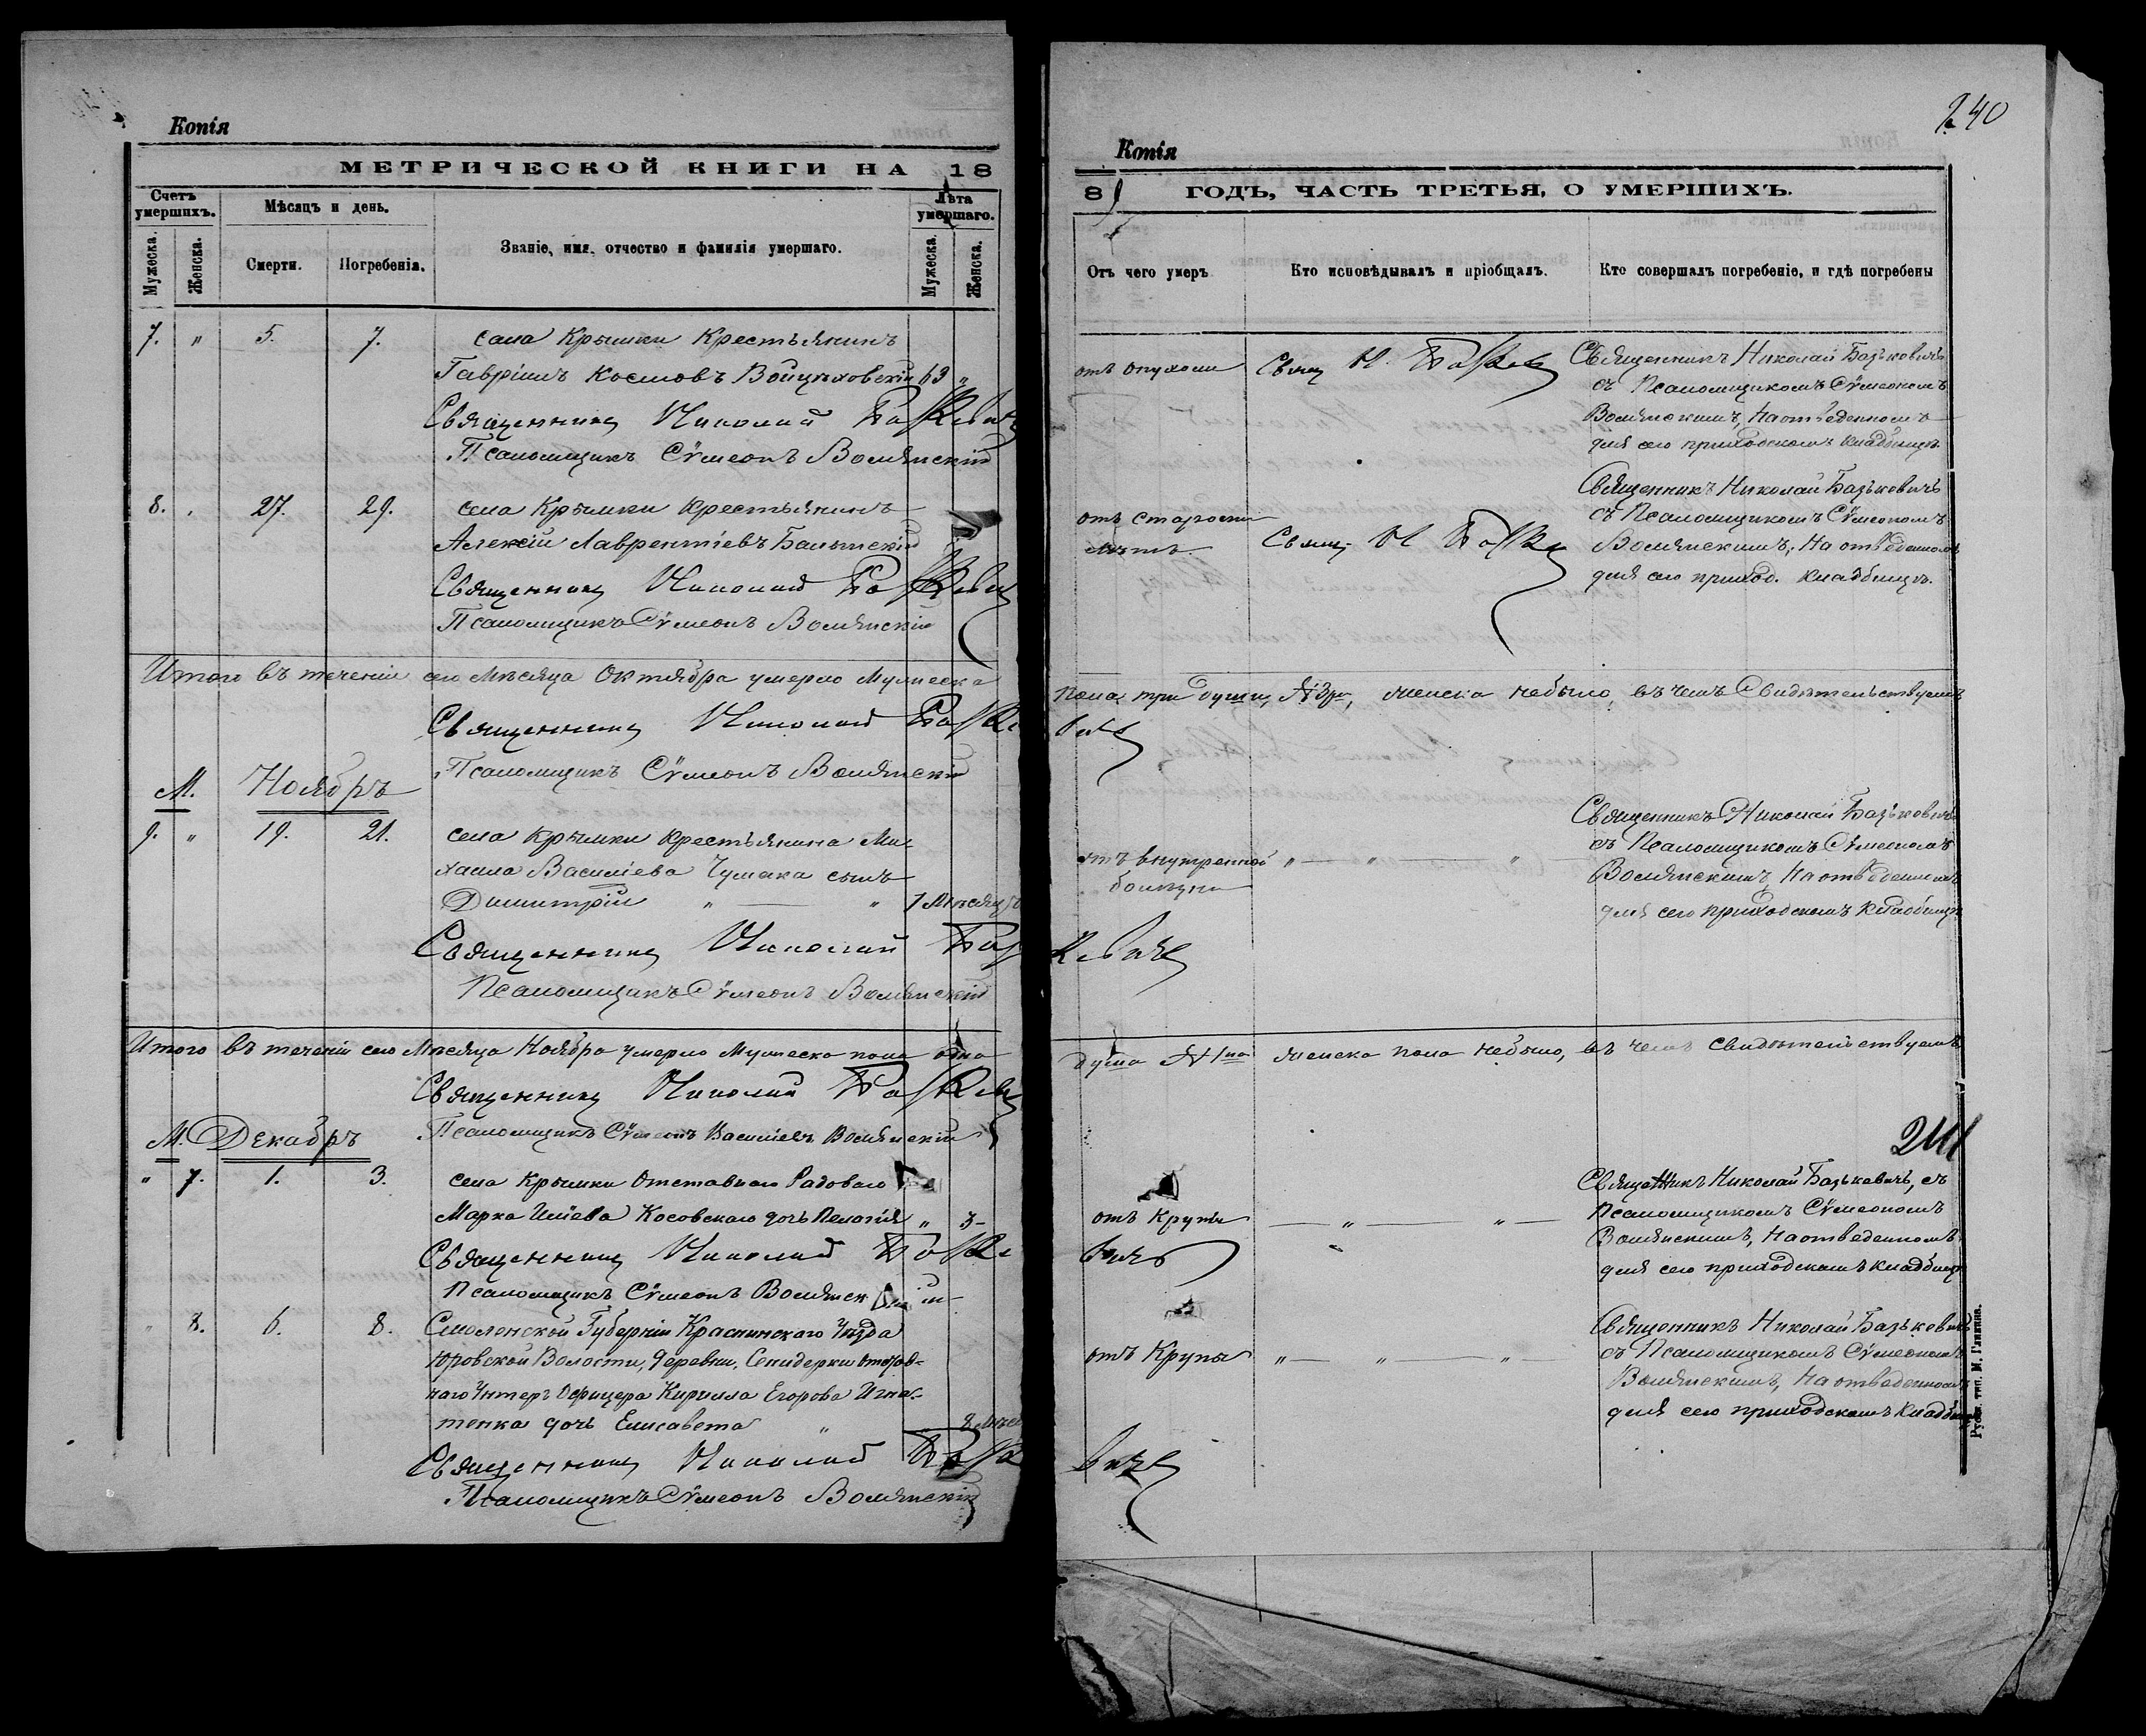 Копія
МЕТРИЧЕСКОЙ КНИГИ НА 18
Счетъ умершихъ.
Мѣсяцъ и день.
Званіе, имя, отчество и фамилія умершаго.
Лѣта умершаго.
Мужеска.
Женска.
Смерти.
Погребенія.
Мужеска.
Женска.
7. " 5. 7. села Крымки Крестьянинъ
Гавріилъ Космовъ Войцѣховскій 63 "
Священникъ Николай Базькевичъ
Псаломщикъ Сѵмеонъ Волянскій
8. . 27. 29. села Крымки крестьянинъ
Алексій Лаврентіевъ
Священникъ Николай Базькевичъ
Псаломщикъ Сѵмеонъ Волянскій
Итого въ теченіи сего Мѣсяца Октября умерло Мужеска
Священникъ Николай Базьке
Псаломщикъ Сѵмеонъ Волянскій
М. Ноябръ
9. " 19. 21. села Крымки крестьянина Ми-
хаила Василіева Чумака сынъ
Димитрій " — " 1 Мѣсяцъ
Священникъ Николай Базь
Псаломщикъ Сѵмеонъ Волянскій
Итого въ теченіи сего Мѣсяца Ноября умерло Мужеска пола одна
Священникъ Николай Базькевичъ
Псаломщикъ Сѵмеонъ Василіевъ Волянскій
М. Декабръ
" 7. 1. 3. села Крымки Отставного Рядоваго
Марка Иліева Косовскаго дочь Пелагія " 3-
Священникъ Николай Базьке
Псаломщикъ Сѵмеонъ Волянскій
" 8. 6. 8. Смоленской Губерніи Краснинскаго Уѣзда
Юровской Волости, деревни, отстав-
наго Унтеръ Офицера Кирилла Егорова Игна-
тенка дочь Елисавета " 8 мѣся
Священникъ Николай Базьке
Псаломщикъ Сѵмеонъ Волянскій
240
Копія
8 ГОДЪ, ЧАСТЬ ТРЕТЬЯ, О УМЕРШИХЪ.
Отъ чего умеръ
Кто исповѣдывалъ и пріобщалъ.
Кто совершалъ погребеніе, и гдѣ погребены
отъ опухоли Свящ Н. Базькев Священникъ Николай Базькевичъ
съ Псаломщикомъ Сѵмеономъ
Волянскимъ, На отведенномъ
для сего приходскомъ кладбищѣ.
Священникъ Николай Базькевичъ
отъ старости съ Псаломщикомъ Сѵмеономъ
лѣтъ Свящ Н Базьке Волянскимъ, На отведенномъ
для сего приход. кладбищѣ.
Пола, три души, № 3ри, женска небыло, въ чемъ Свидѣтельствуемъ
вичъ
Священникъ Николай Базькевичъ
съ Псаломщикомъ Сѵмеономъ
отъ внутренной " — " — " Волянскимъ, На отведенномъ
болѣзни для сего приходскомъ кладбищѣ
кевичъ
душа № 1на женска пола небыло, въ чемъ свидѣтельствуемъ
241
Священникъ Николай Базькевичъ, съ
отъ Крупы — " — " — Псаломщикомъ Сѵмеономъ
вичъ Волянскимъ, На отведенномъ
для сего приходскомъ кладбищѣ
Священникъ Николай Базькевичъ
отъ Крупы " — " — " съ Псаломщикомъ Сѵмеономъ
Волянскимъ, На отведенномъ
для сего приходскомъ Кладби
вичъ
тип. М. Гликина.